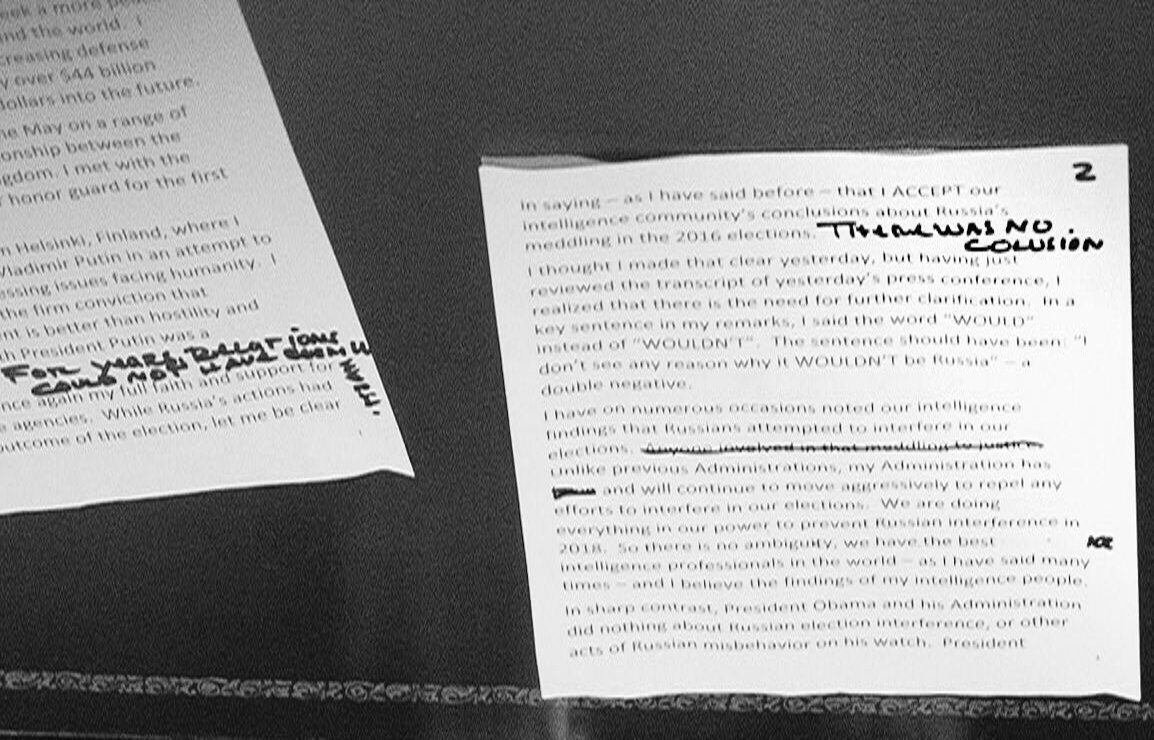 eek a more
nd the world. I
creasing defense
y over $44 billion
dollars into the future.
e May on a range of
onship between the
gdom. I met with the
honor guard for the first
n Helsinki, Finland, where I
Vladimir Putin in an attempt to
essing issues facing humanity. I
the firm conviction that
nt is better than hostility and
th President Putin was a
FOR YEARS, RELATIONS
COULD NOT HAVE BEEN
nce again my full faith and support for
e agencies. While Russia's actions had
outcome of the election, let me be clear
2
In saying – as I have said before – that I ACCEPT our
intelligence community's conclusions about Russia's
meddling in the 2016 elections. THERE WAS NO
COLUSION
I thought I made that clear yesterday, but having just
reviewed the transcript of yesterday's press conference, I
realized that there is the need for further clarification. In a
key sentence in my remarks, I said the word "WOULD"
instead of "WOULDN'T". The sentence should have been: "I
don't see any reason why it WOULDN'T be Russia" – a
double negative.
I have on numerous occasions noted our intelligence
findings that Russians attempted to interfere in our
elections. Anyone involved in that meddling to justice.
Unlike previous Administrations, my Administration has
and will continue to move aggressively to repel any
efforts to interfere in our elections. We are doing
everything in our power to prevent Russian interference in
2018. So there is no ambiguity, we have the best
intelligence professionals in the world – as I have said many
times – and I believe the findings of my intelligence people.
In sharp contrast, President Obama and his Administration
did nothing about Russian election interference, or other
acts of Russian misbehavior on his watch. President